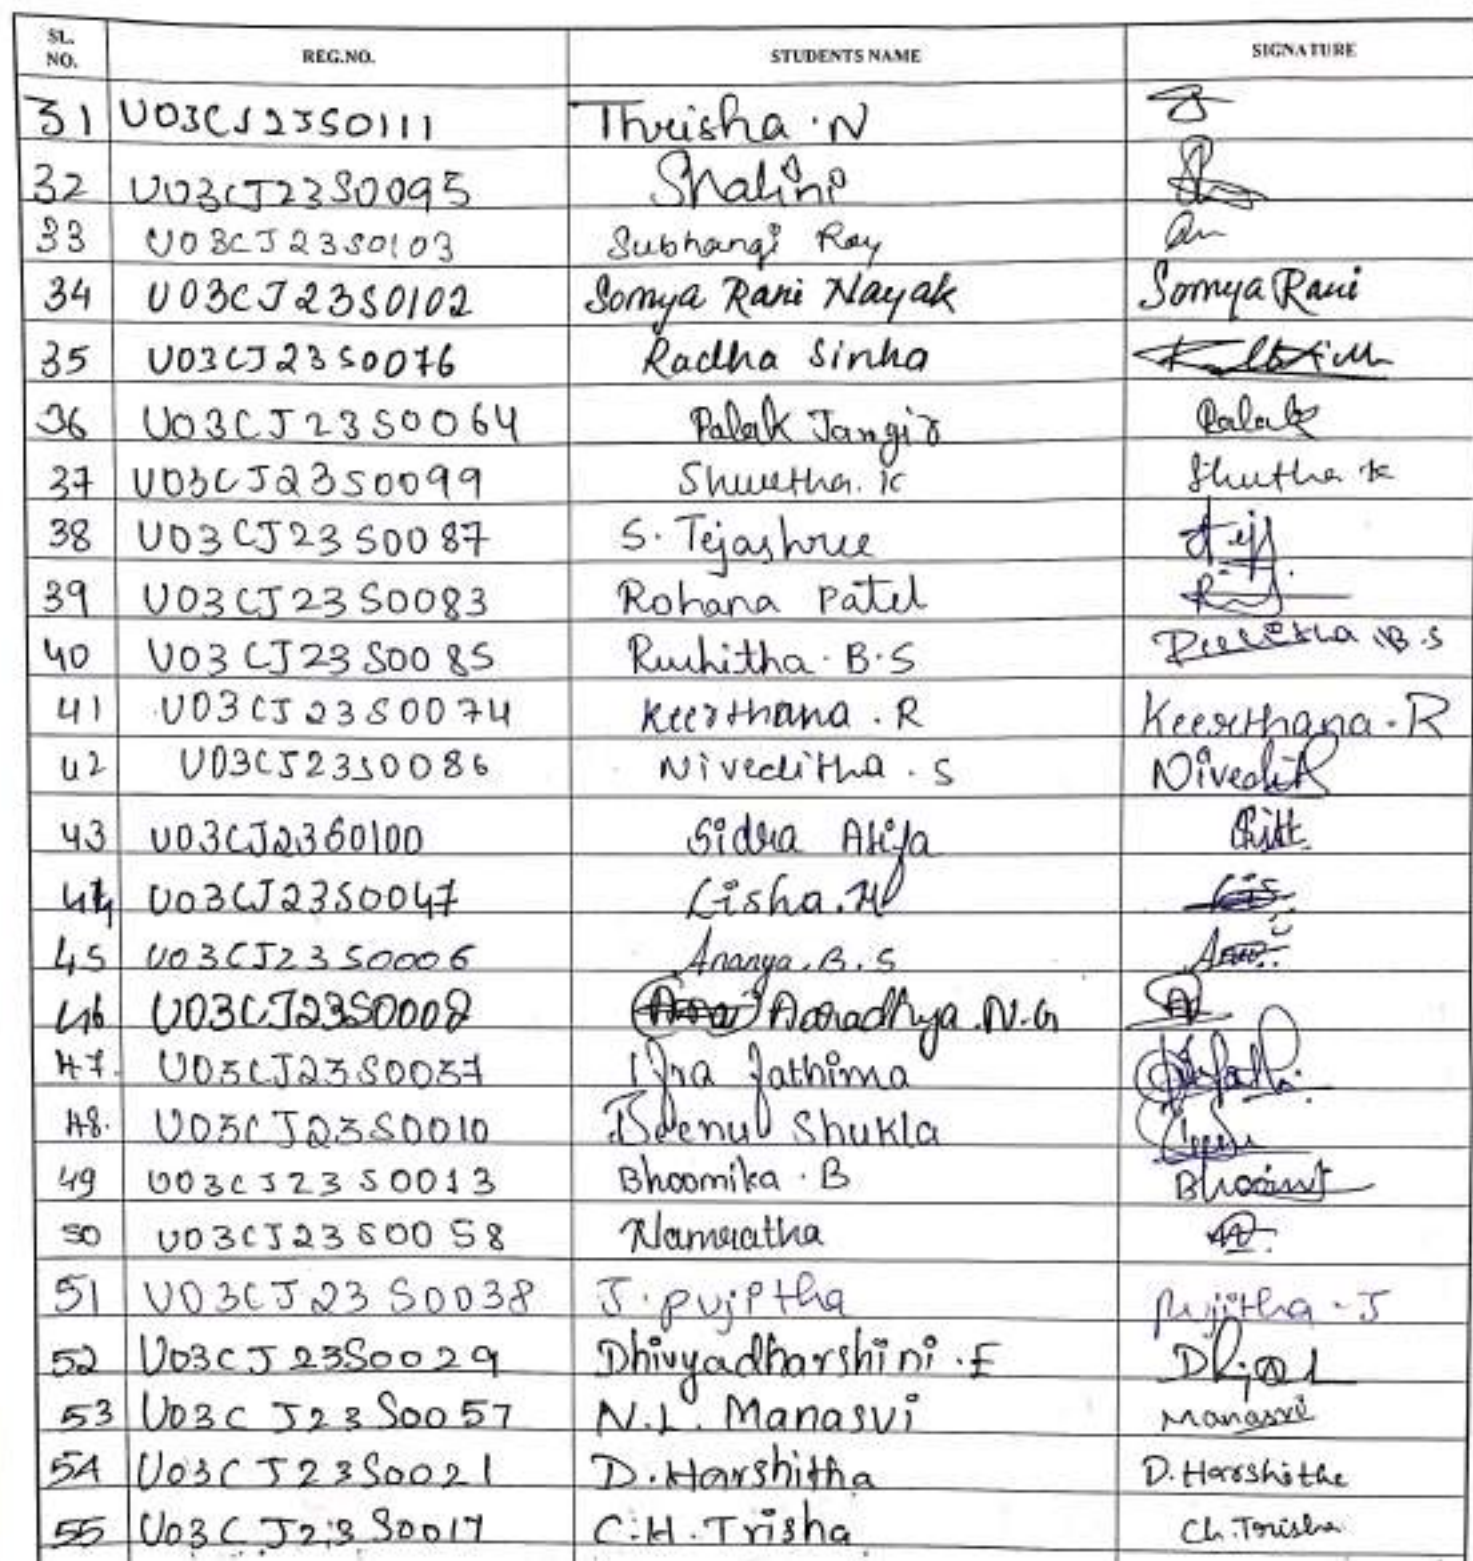 SL. NO. REG.NO. STUDENTS NAME SIGNATURE
31 U03CJ23S0111 Thrisha.N
32 U03CJ23S0095 Shalini
33 U03CJ23S0103 Subhangi Ray
34 U03CJ23S0102 Somya Rani Nayak Somya Rani
35 U03CJ23S0076 Radha Sinha
36 U03CJ23S0064 Palak Jangir Palak
37 U03CJ23S0099 Shwetha.K Shwetha K
38 U03CJ23S0087 S. Tejashree Tej
39 U03CJ23S0083 Rohana Patel
40 U03CJ23S0085 Ruchitha.B.S Ruchitha B.S
41 U03CJ23S0074 Keerthana.R Keerthana.R
42 U03CJ23S0086 Niveditha.S Nivedit
43 U03CJ23S0100 Sidra Atifa
44 U03CJ23S0047 Lisha.M
45 U03CJ23S0006 Ananya.B.S
46 U03CJ23S0002 Aaradhya.N.G
47. U03CJ23S0037 Ifra fathima
48. U03CJ23S0010 Beenu Shukla
49 U03CJ23S0013 Bhoomika.B Bhoomi
50 U03CJ23S0058 Namratha
51 U03CJ23S0038 J.pujitha pujitha-J
52 U03CJ23S0029 Dhivyadharshini.E
53 U03CJ23S0057 N.L.Manasvi Manasvi
54 U03CJ23S0021 D.Harshitha D.Harshitha
55 U03CJ23S0017 C.H.Trisha Ch.Trisha